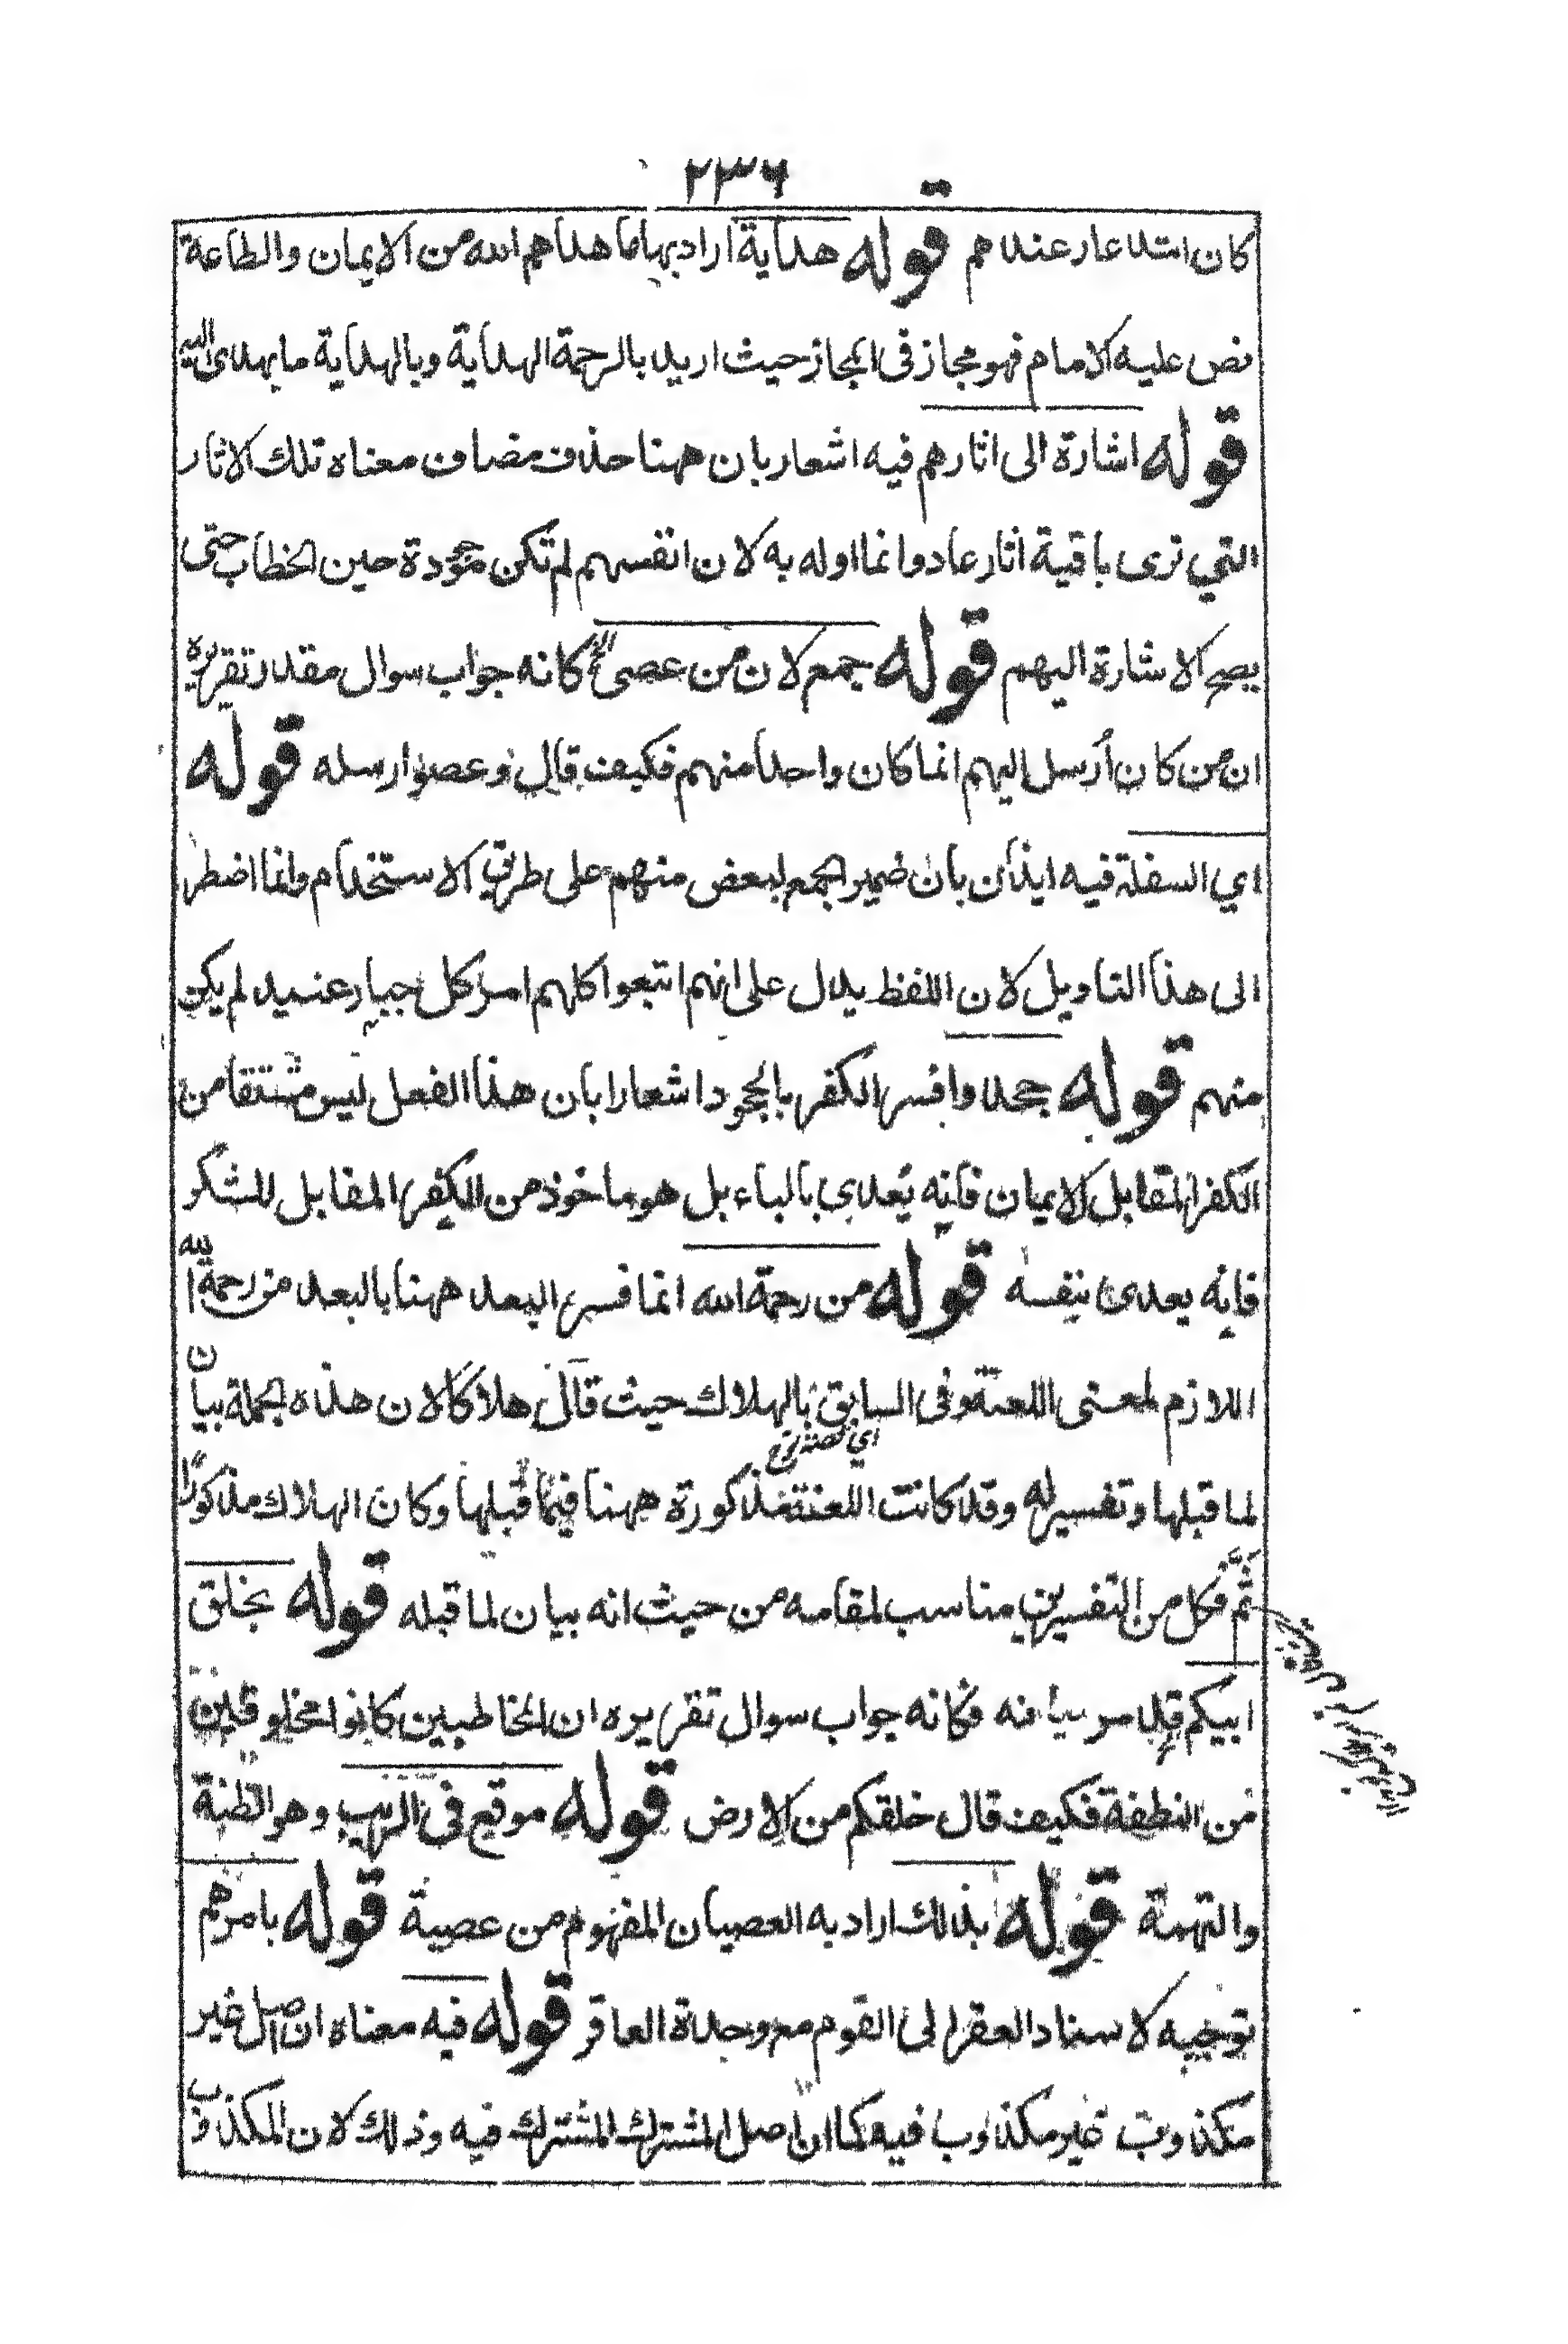 ٢٣٦
كان اشد عار عندهم قوله هداية اراد بها ما هداهم الله من الايمان والطاعة
نص عليه الامام فهو مجاز فى المجاز حيث اريد بالرحمة الهداية وبالهداية ما يهدى اليه
قوله اشارة الى اثارهم فيه اشعار بان ههنا حذف مضاف معناه تلك الاثار
التي ترى باقية اثار عاد وانما اوله به لان انفسهم لم تكن موجودة حين الخطاب حتى
يصح الاشارة اليهم قوله جمع لان من عصى الخ كانه جواب سوال مقدر تقريره
ان من كان أرسل اليهم انما كان واحدا منهم فكيف قال وعصوا رسله قوله
اي السفلة فيه ايذان بان ضمير الجمع لبعض منهم على طريق الاستخدام وانما اضطر
الى هذا التاويل لان اللفظ يدل على انهم اتبعوا كلهم امر كل جبار عنيد لم يكن
منهم قوله جحدوا فسر الكفر بالجحود اشعارا بان هذا الفعل ليس مشتقا من
الكفر المقابل الايمان فانه يُعدي بالباء بل هو ماخوذ من الكفر المقابل للشكر
فانه يعدى بنفسه قوله من رحمة الله انما فسر البعد ههنا بالبعد من رحمة الله
اللازم لمعنى اللعنة وفى السابق بالهلاك حيث قال هلاكا لان هذه الجملة بيان
لما قبلها وتفسير له وقد كانت اللعنة مذكورة ههنا فيما قبلها وكان الهلاك مذكورًا
اي قصة نوح
ثَمَّ فكل من التفسيرين مناسب لمقامه من حيث انه بيان لما قبله قوله بخلق
ابيكم قد مر بيانه فكانه جواب سوال تقريره ان المخاطبين كانوا مخلوقين
من النطفة فكيف قال خلقكم من الارض قوله موقع فى الريب وهو الظنة
والتهمة قوله بذلك اراد به العصيان المفهوم من عصية قوله بامرهم
توجيه لاسناد العقر الى القوم مع وحدة العاقر قوله فيه معناه ان اصل غير
مكذوب غير مكذوب فيه كما ان اصل المشترك المشترك فيه وذلك لان المكذوب